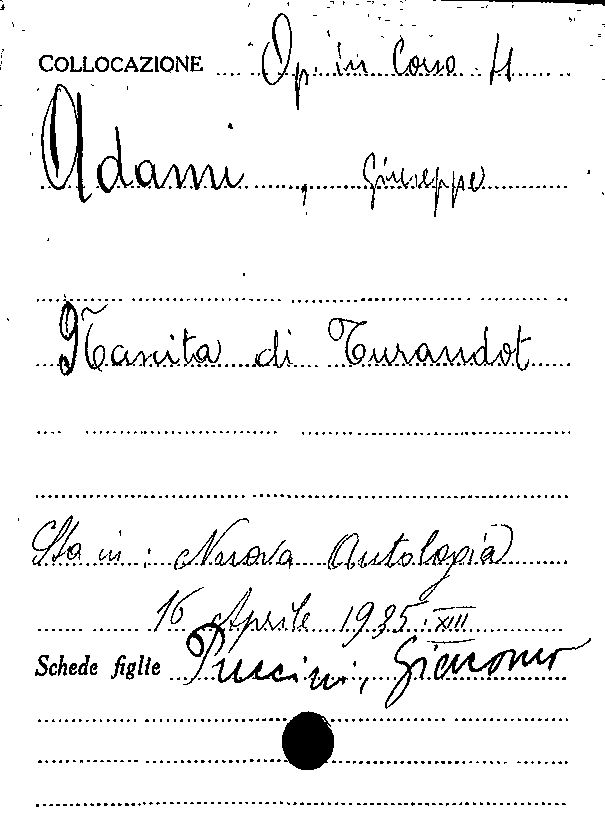 COLLOCAZIONE Op. in Corso 11
Adami, Giuseppe
Nascita di Turandot
Sta in: Nuova Antologia
16 Aprile 1935.XIII
Schede figlie Puccini, Giacomo